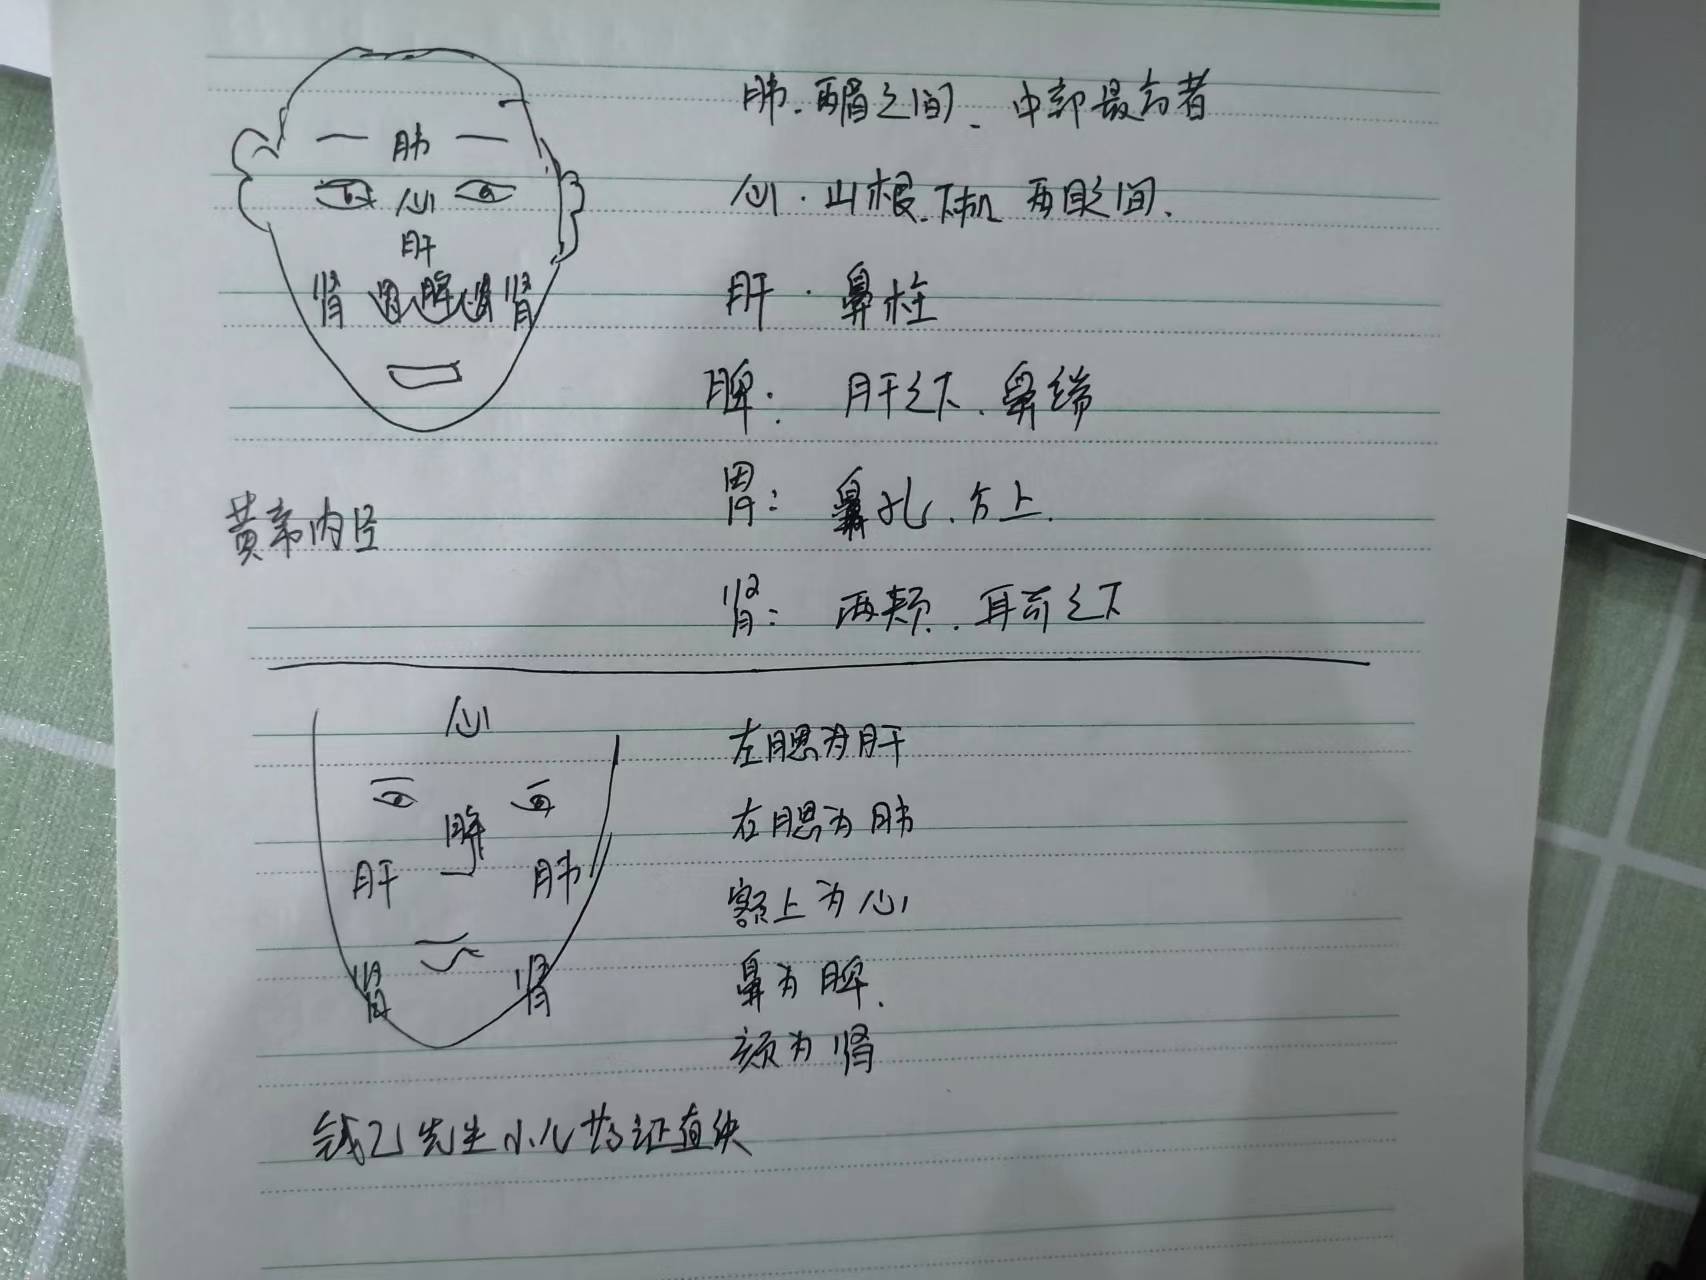 肺
心
肝
肾 胃 脾 胃 肾
黄帝内径
肺.两眉之间、中部最高者
心.山根.下机 两目之间、
肝.鼻柱
脾: 肝之下、鼻端
胃: 鼻孔、方上.
肾: 两颊.、耳前之下
心
脾
肝 肺
肾 肾
左腮为肝
右腮为肺
额上为心
鼻为脾、
颏为肾
钱乙先生小儿药证直决